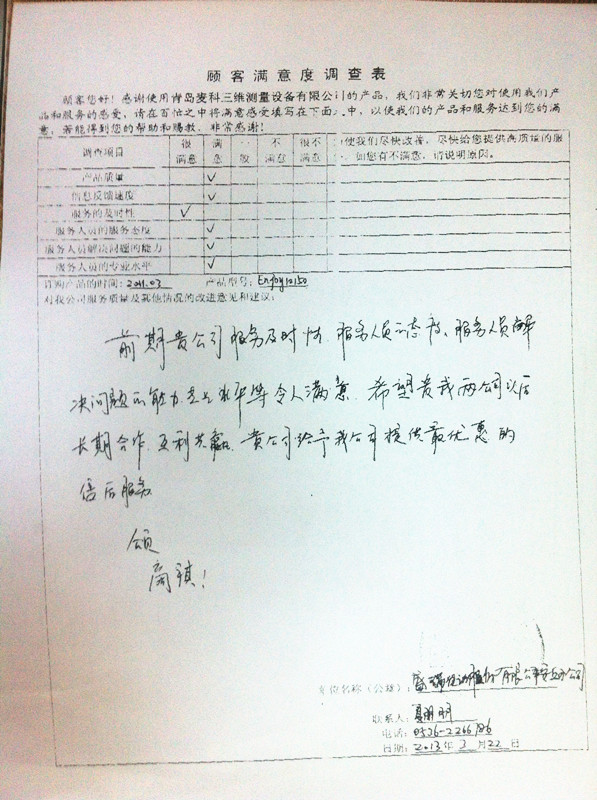 顾客满意度调查表
顾客您好！感谢使用青岛麦科三维测量设备有限公司的产品，我们非常关切您对使用我们产
品和服务的感受，请在百忙之中将满意感受填写在下面，中，以使我们的产品和服务达到您的满
意，若能得到您的帮助和赐教，非常感谢！
调查项目 很满意 满意 一般 不满意 很不满意 使我们尽快改善，尽快给您提供高质量的服
如您有不满意，请说明原因。
产品质量 ✓
信息反馈速度 ✓
服务的及时性 ✓
服务人员的服务态度 ✓
服务人员解决问题的能力 ✓
服务人员的专业水平 ✓
订购产品的时间：2011.03 产品型号：Enjoy10150
对我公司服务质量及其他情况的改进意见和建议：
前期贵公司服务及时性、服务人员的态度、服务人员解
决问题的能力、专业水平等令人满意。希望贵我两公司以后
长期合作，互利共赢。贵公司给予我公司提供最优惠的
售后服务
颂
商祺！
单位名称（公章）：有限公司安丘分公司
联系人：
电话：0536-2266786
日期：2013年3月22日